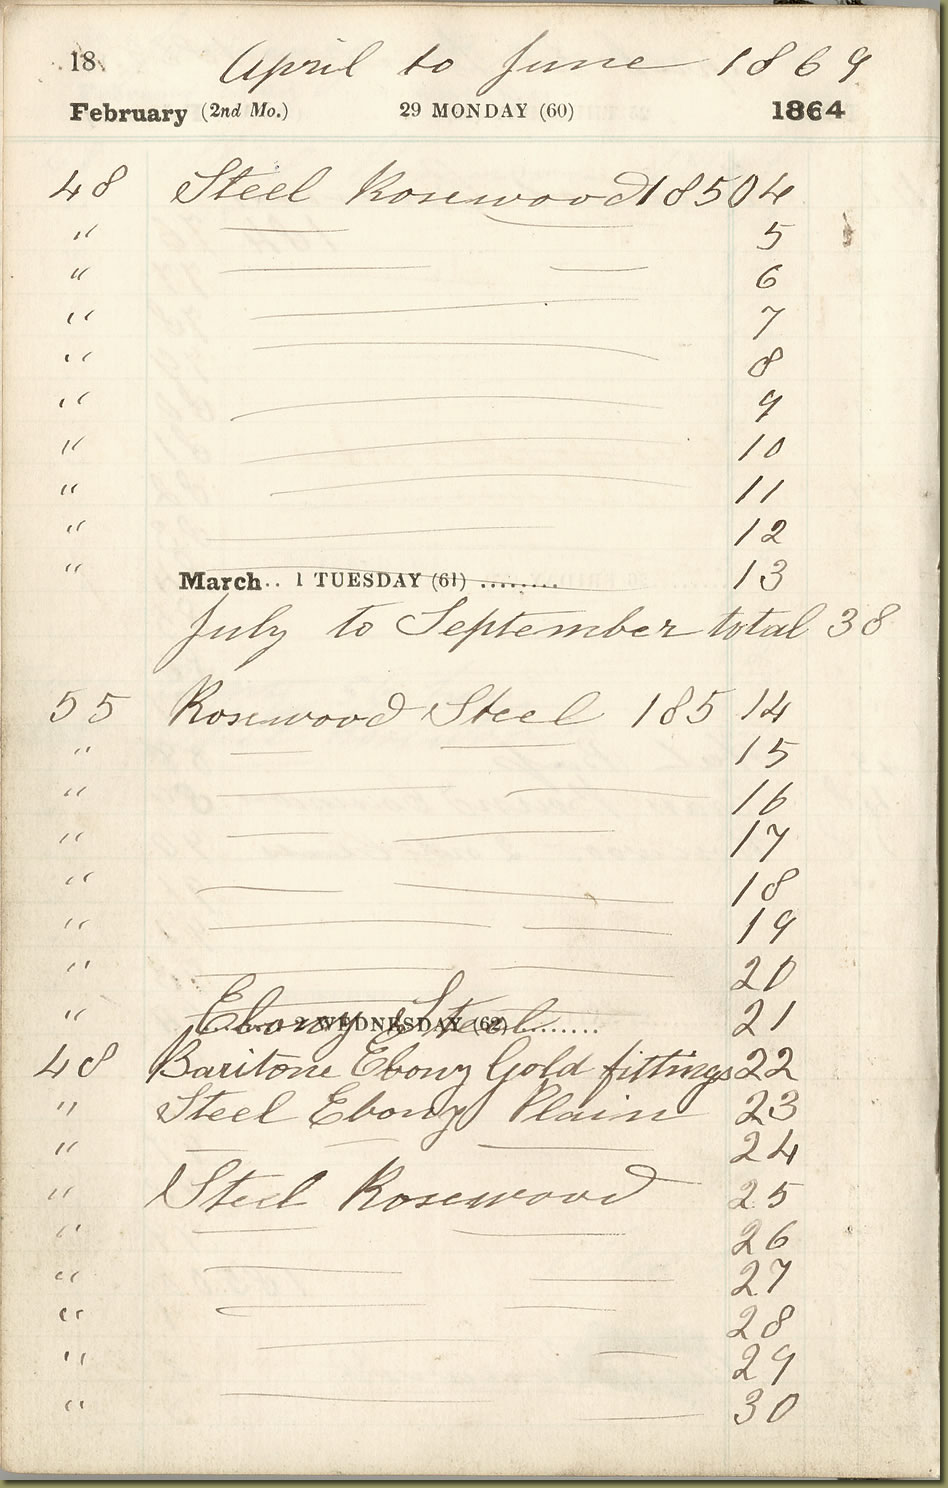 18
April to June 1869
February (2nd Mo.) 29 MONDAY (60) 1864
48 Steel Rosewood 18504
" 5
" 6
" 7
" 8
" 9
" 10
" 11
" 12
" March.. 1 TUESDAY (61) ........ 13
July to September total 38
55 Rosewood Steel 185 14
" 15
" 16
" 17
" 18
" 19
" 20
" Ebony Steel 21
2 WEDNESDAY (62) ........
48 Baritone Ebony Gold fittings 22
" Steel Ebony Plain 23
" 24
" Steel Rosewood 25
" 26
" 27
" 28
" 29
" 30